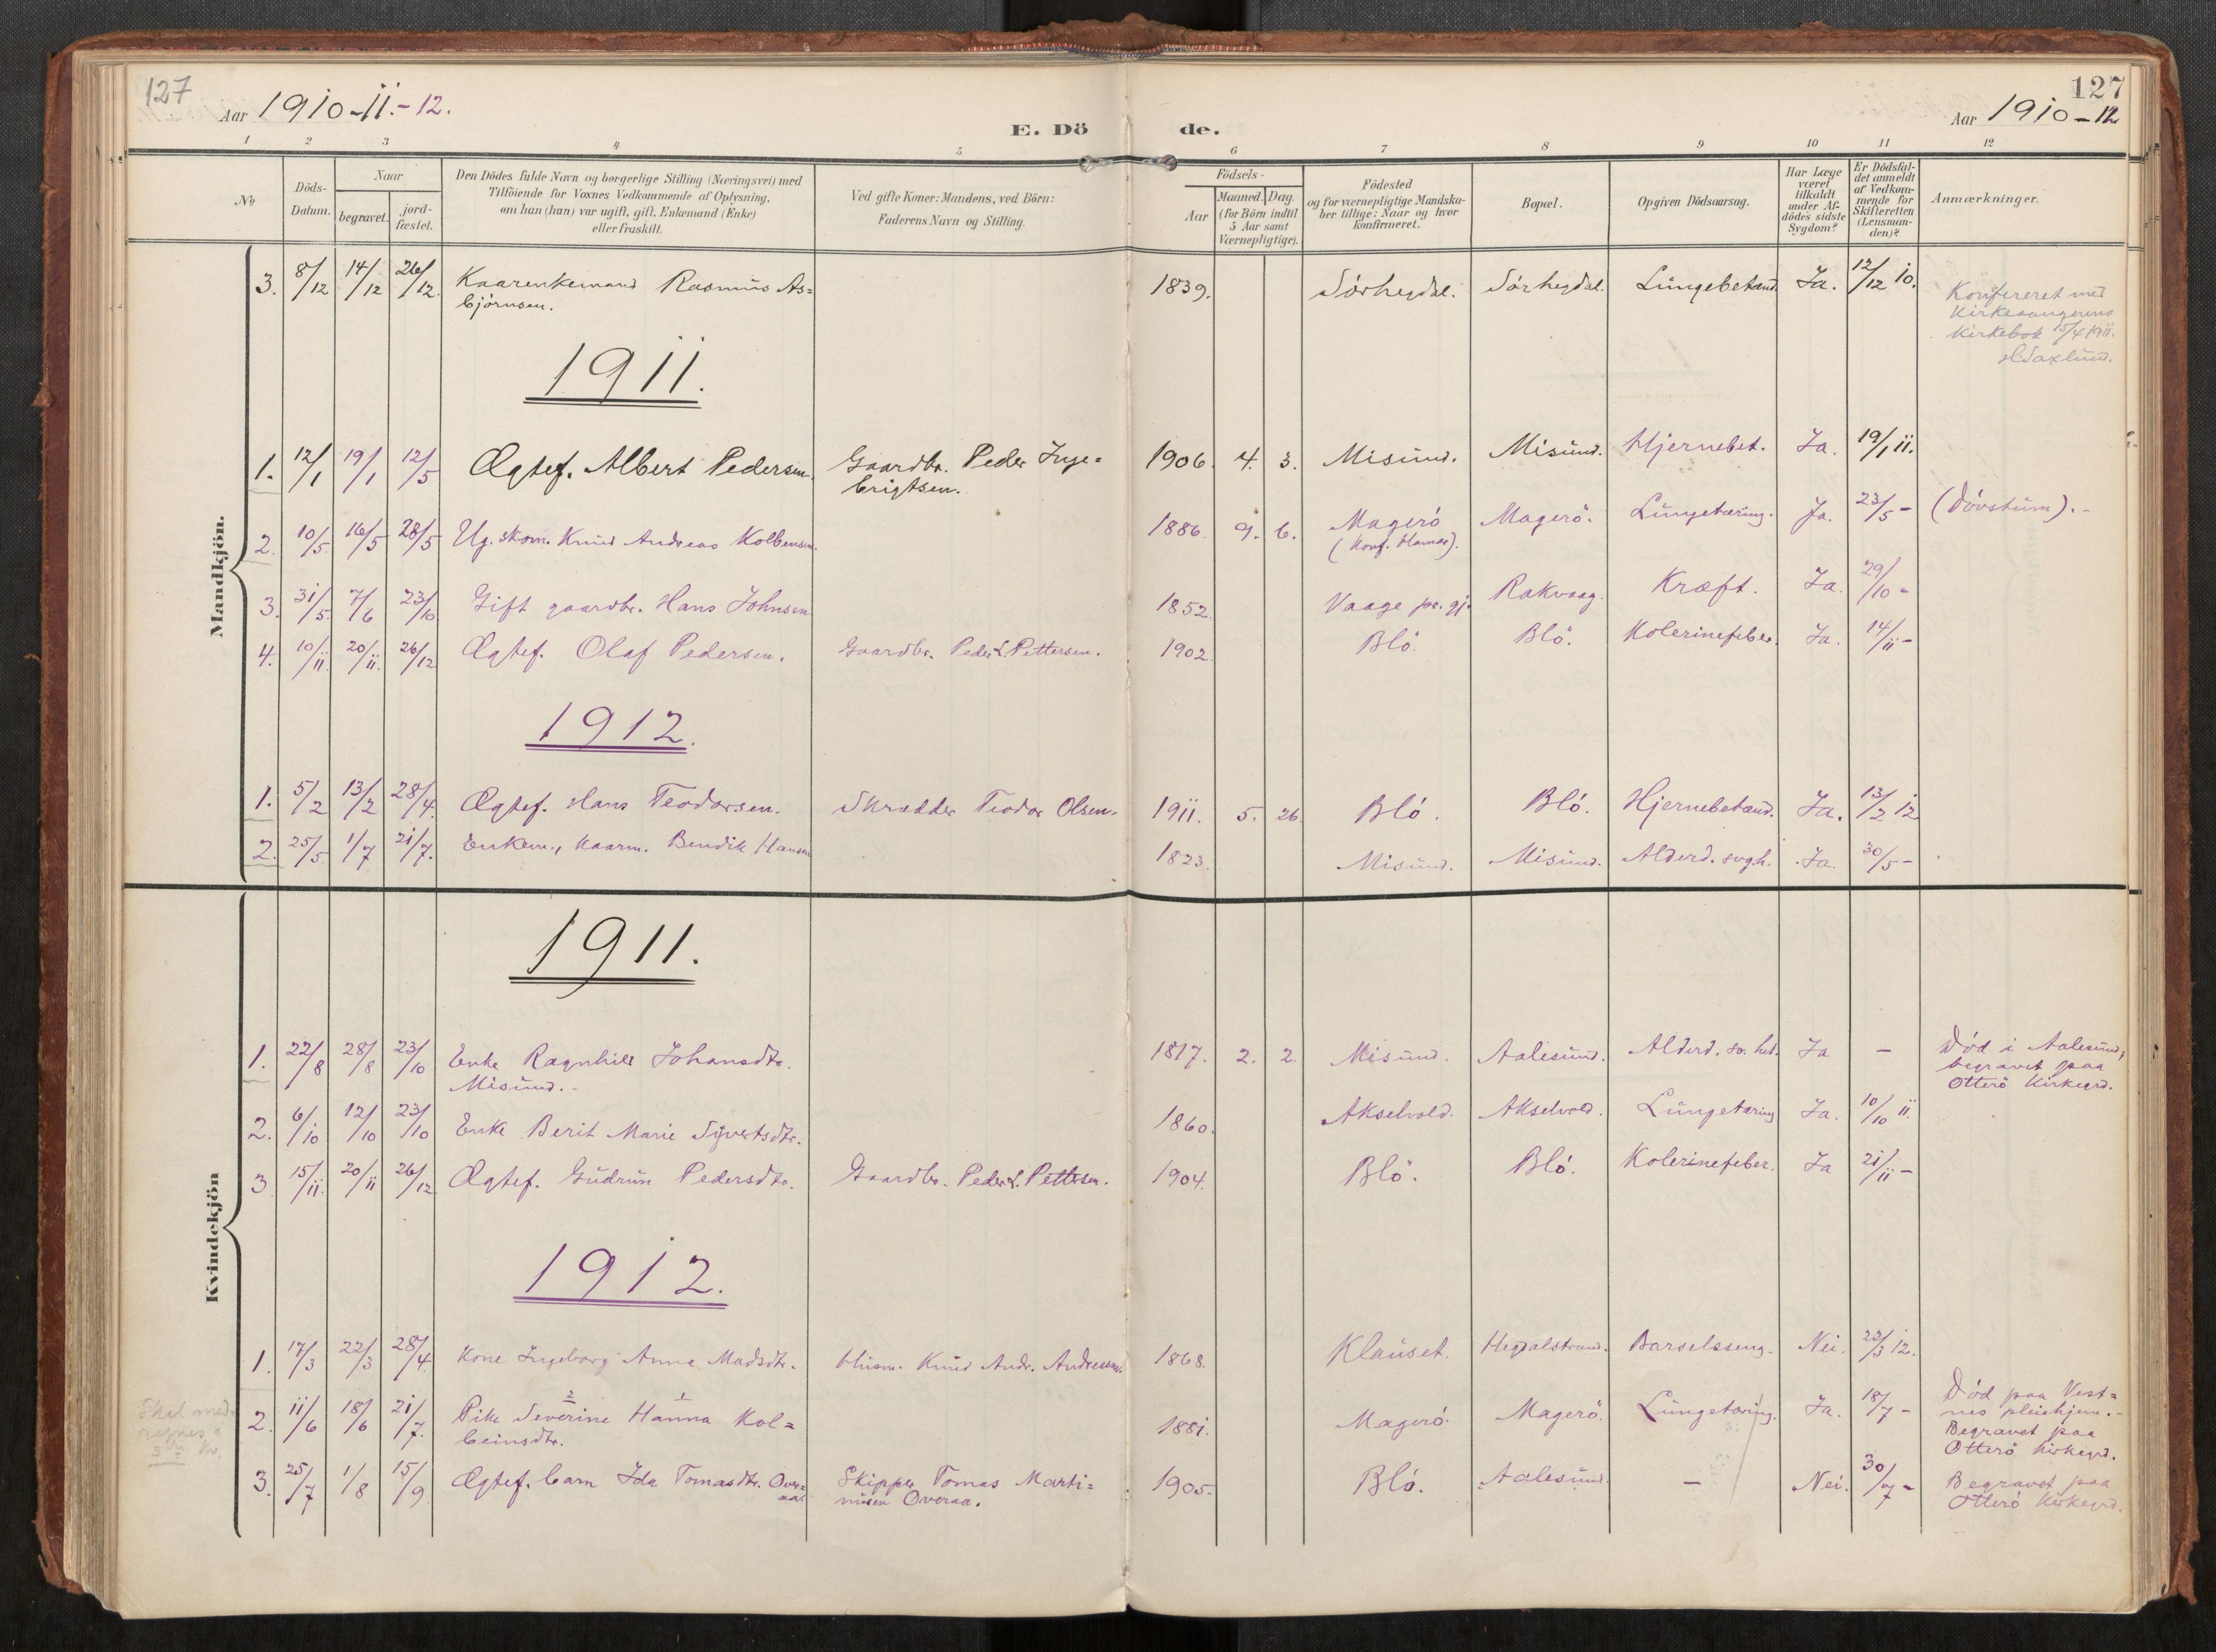 127
Aar 1910-11.-12.
E. Dö de.
127
Aar 1910-12
1 2 3 4 5 6 7 8 9 10 11 12
No
Döds-Datum.
Naar
begravet.
jord-fæstet.
Den Dödes fulde Navn og borgerlige Stilling (Næringsvei) med
Tilföiende for Voxnes Vedkommende af Oplysning,
om han (hun) var ugift, gift, Enkemand (Enke)
eller fraskilt.
Ved gifte Koner: Mandens, ved Börn:
Faderens Navn og Stilling.
Födsels-
Aar
Maaned. Dag.
(for Börn indtil
5 Aar samt
Værnepligtige).
Födested
og for værnepligtige Mandska-
ber tillige: Naar og hvor
konfirmeret.
Bopæl.
Opgiven Dödsaarsag.
Har Læge
været
tilkaldt
under Af-
dödes sidste
Sygdom?
Er Dödsfal-
det anmeldt
af Vedkom-
mende for
Skifteretten
(Lensman-
den)?
Anmærkninger.
Mandkjön.
3. 8/12 14/12 26/12. Kaarenkemand Rasmus As=
bjørnsen. 1839. Sørhegdal. Sørhegdal. Lungebetænd. Ja. 12/12 10.
Konfereret med
Kirkesangerens
Kirkebok 15/4 1911.
Saxlund.
1911.
1. 12/1 19/1 12/5 Ægtef. Albert Pedersen. Gaardbr. Peder Inge=
brigtsen. 1906. 4. 3. Misund. Misund. Hjernebet. Ja. 19/1 11.
2. 10/5 16/5 28/5 Ug. skom. Knud Andreas Kolbensen. 1886. 9. 6. Magerö
(Konf. Hamar). Magerö. Lungetæring. Ja. 23/5 - (Døvstum). -
3. 31/5. 7/6 23/10 Gift gaardbr. Hans Johnsen 1852. Vaage pr. gj. Rakvaag. Kræft. Ja. 29/10 -
4. 10/11. 20/11. 26/12 Ægtef. Olaf Pedersen. Gaardbr. Peder L. Pettersen. 1902. Blö. Blö. Kolerinefeber. Ja. 14/11 -
1912.
1. 5/2 13/2 28/4. Ægtef. Hans Teodorsen. Skrædder Teodor Olsen. 1911. 5. 26. Blö. Blö. Hjernebetænd. Ja. 13/2 12
2. 25/5. 1/7 21/7. Enkem., Kaarm. Bendik Hansen 1823. Misund. Misund. Alderd. svgh. Ja. 30/5 -
Kvindekjön
1911.
1. 22/8 28/8 23/10 Enke Ragnhild Johansdtr.
Misund. - 1817. 2. 2. Misund. Aalesund. Alderd. sv. hed. Ja - Død i Aalesund,
begravet paa
Otterö Kirkegrd.
2. 6/10 12/10 23/10 Enke Berit Marie Syvertsdtr. 1860. Akselvold. Akselvold. Lungetæring Ja. 10/10 11.
3. 15/11. 20/11 26/12 Ægtef. Gudrun Pedersdtr. Gaardbr. Peder L. Pettersen. 1904. Blö. Blö. Kolerinefeber. Ja 21/11 -
1912.
1. 17/3 22/3 28/4. Kone Ingeborg Anna Madsdtr. Husm. Knud Andr. Andreassen. 1868. Klauset. Hegdalstrand. Barselsseng. Nei. 22/3 12.
Skal med=
regnes
2. 11/6 18/6 21/7. Pike Severine Hanna Kol=
beinsdtr. 1881. Magerö. Magerö. Lungetæring. Ja. 18/7 - Død paa Vest=
nes pleiehjem. -
Begravet paa
Otterö kirkegrd.
3. 25/7 1/8 15/9 Ægtef. barn Ida Tomasdtr. Over=
aa. Skipper Tomas Marti=
nusen Overaa. 1905. Blö. Aalesund. - Nei. 30/7 - Begravet paa
Otterö Kirkegrd.